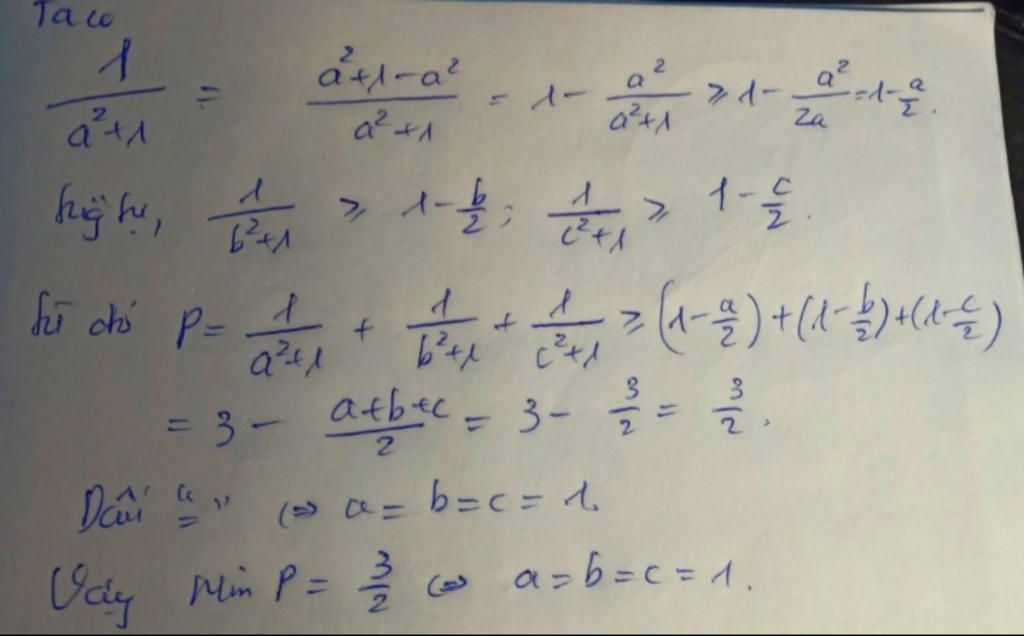 Ta có
1/(a²+1) = (a²+1-a²)/(a²+1) = 1 - a²/(a²+1) ≥ 1 - a²/2a = 1 - a/2.
Tương tự, 1/(b²+1) ≥ 1 - b/2; 1/(c²+1) ≥ 1 - c/2.
Từ đó P = 1/(a²+1) + 1/(b²+1) + 1/(c²+1) ≥ (1 - a/2) + (1 - b/2) + (1 - c/2)
= 3 - (a+b+c)/2 = 3 - 3/2 = 3/2.
Dấu "=" ⇔ a = b = c = 1.
Vậy Min P = 3/2 ⇔ a = b = c = 1.